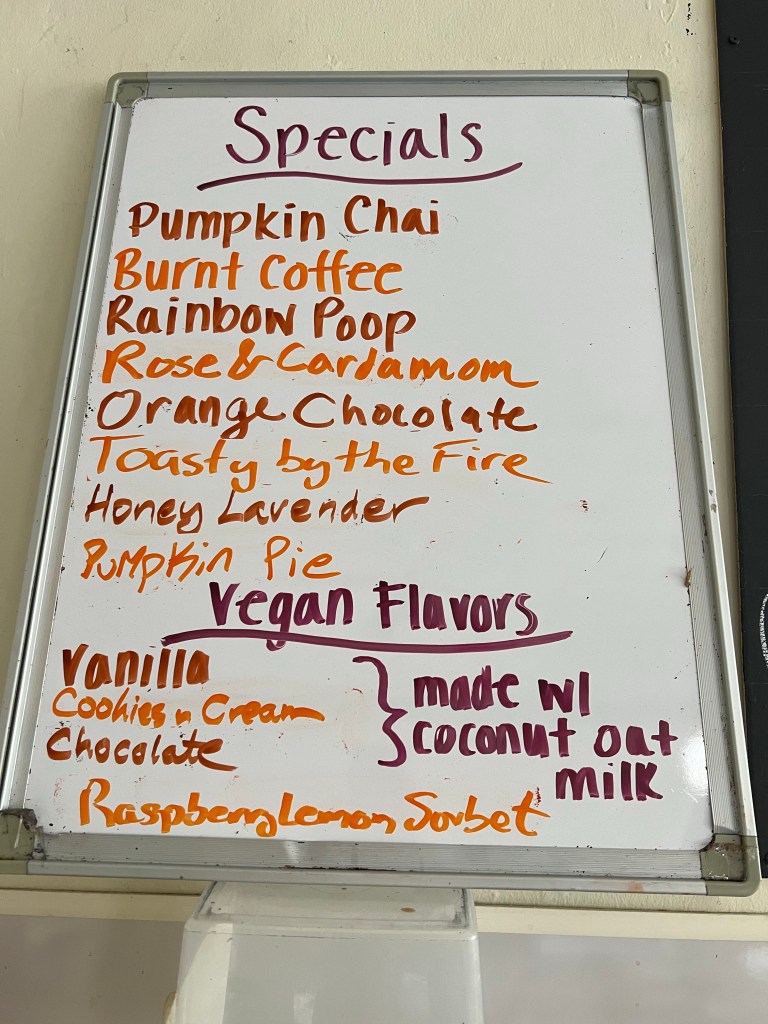 Specials
Pumpkin Chai
Burnt Coffee
Rainbow Poop
Rose & Cardamom
Orange Chocolate
Toasty by the Fire
Honey Lavender
Pumpkin Pie
Vegan Flavors
Vanilla
Cookies n Cream
Chocolate
made w/
coconut oat
milk
Raspberry Lemon Sorbet